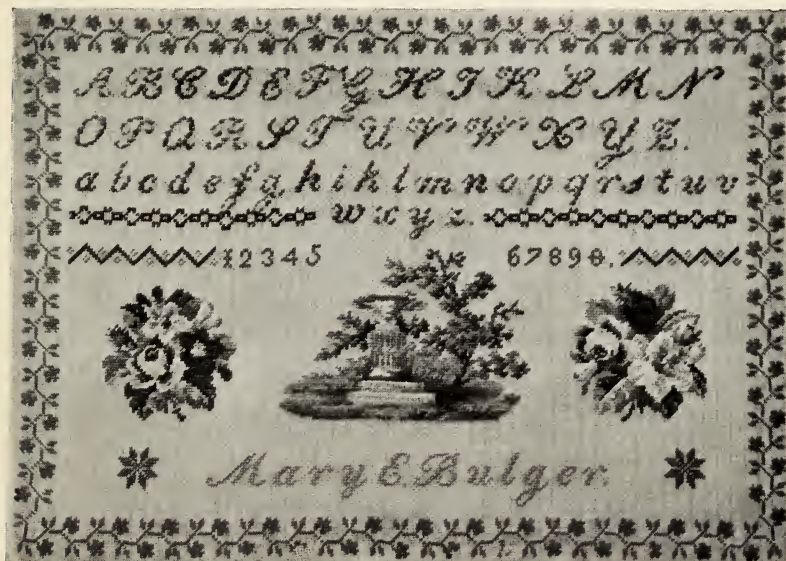 A B C D E F G H I K L M N
O P Q R S T U V W X Y Z.
a b c d e f g h i k l m n o p q r s t u v
w x y z.
1 2 3 4 5 6 7 8 9 0.
Mary E Bulger.